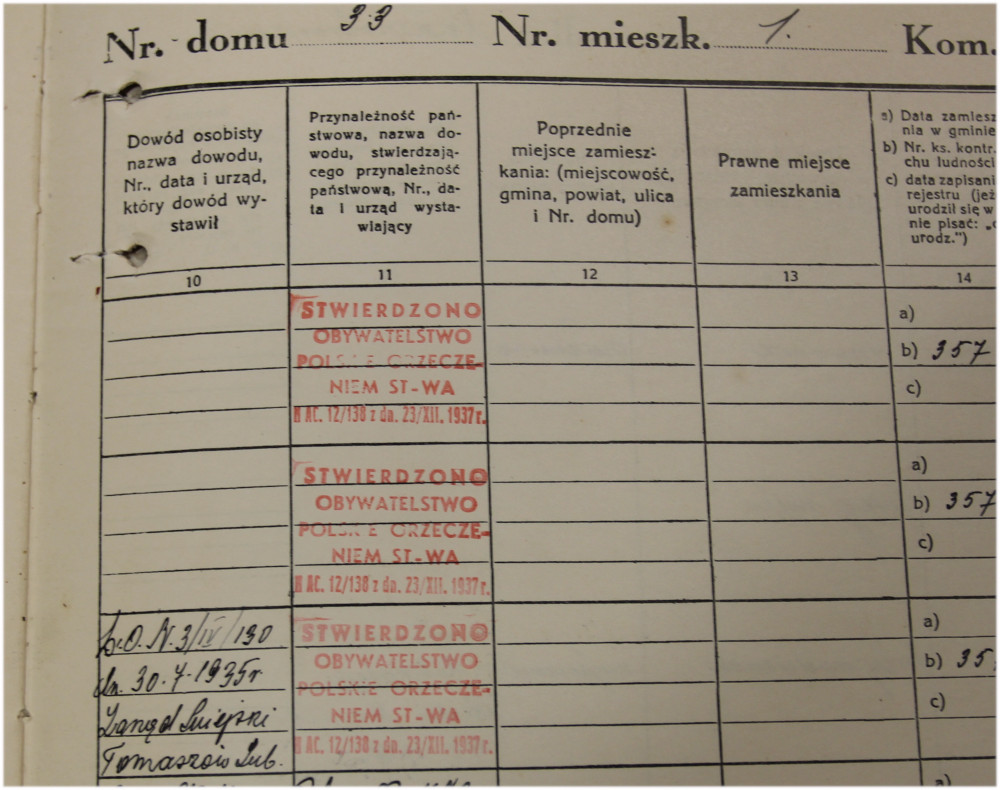 Nr. domu 33 Nr. mieszk. 1. Kom.
Dowód osobisty
nazwa dowodu,
Nr., data i urząd,
który dowód wy-
stawił
Przynależność pań-
stwowa, nazwa do-
wodu, stwierdzają-
cego przynależność
państwową, Nr., da-
ta i urząd wysta-
wiający
Poprzednie
miejsce zamiesz-
kania: (miejscowość,
gmina, powiat, ulica
i Nr. domu)
Prawne miejsce
zamieszkania
a) Data zamiesz
nia w gminie
b) Nr. ks. kontr.
chu ludności
c) data zapisani
rejestru (jeż
urodził się w
nie pisać: „
urodz.")
10 11 12 13 14
STWIERDZONO
OBYWATELSTWO
POLSKIE ORZECZE-
NIEM ST-WA
N AC. 12/138 z dn. 23/XII. 1937 r.
a)
b) 357
c)
STWIERDZONO
OBYWATELSTWO
POLSKIE ORZECZE-
NIEM ST-WA
N AC. 12/138 z dn. 23/XII. 1937 r.
a)
b) 357
c)
D.O. N. 3/IV/130
dn. 30.7.1935 r
Zarząd Miejski
Tomaszów Lub.
STWIERDZONO
OBYWATELSTWO
POLSKIE ORZECZE-
NIEM ST-WA
N AC. 12/138 z dn. 23/XII. 1937 r.
a)
b) 35
c)
a)